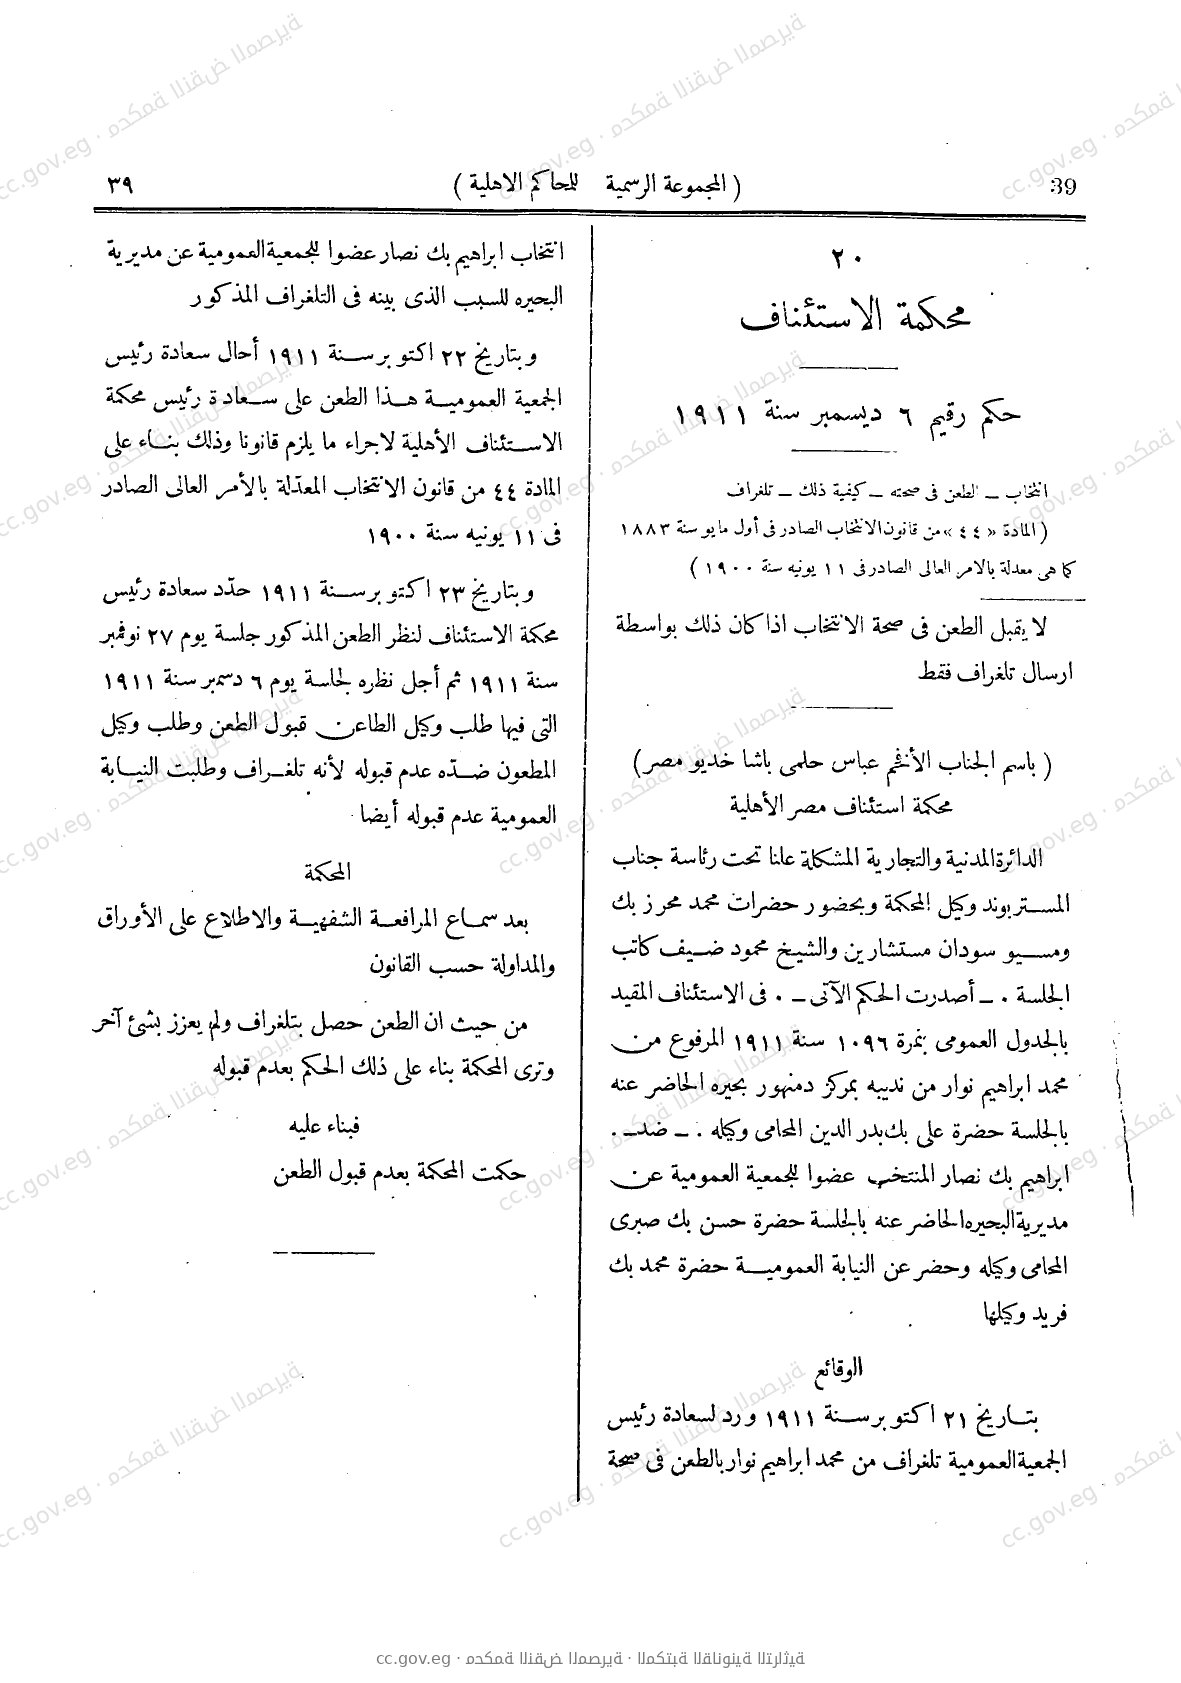 39
( المجموعة الرسمية للمحاكم الاهلية )
٣٩
٢٠
محكمة الاستئناف
حكم رقيم ٦ ديسمبر سنة ١٩١١
انتخاب ــ الطعن فى صحته ــ كيفية ذلك ــ تلغراف
( المادة « ٤٤ » من قانون الانتخاب الصادر فى أول مايو سنة ١٨٨٣
كما هى معدلة بالامر العالى الصادر فى ١١ يونيه سنة ١٩٠٠ )
لا يقبل الطعن فى صحة الانتخاب اذا كان ذلك بواسطة
ارسال تلغراف فقط
( باسم الجناب الأفخم عباس حلمى باشا خديو مصر )
محكمة استئناف مصر الأهلية
الدائرة المدنية والتجارية المشكلة علنا تحت رئاسة جناب
المستر بوند وكيل المحكمة وبحضور حضرات محمد محرز بك
ومسيو سودان مستشارين والشيخ محمود ضيف كاتب
الجلسة ٠ ــ أصدرت الحكم الآتى ــ ٠ فى الاستئناف المقيد
بالجدول العمومى بنمرة ١٠٩٦ سنة ١٩١١ المرفوع من
محمد ابراهيم نوار من نديبه بمركز دمنهور بحيره الحاضر عنه
بالجلسة حضرة على بك بدر الدين المحامى وكيله ٠ ــ ضد ــ ٠
ابراهيم بك نصار المنتخب عضوا للجمعية العمومية عن
مديرية البحيره الحاضر عنه بالجلسة حضرة حسن بك صبرى
المحامى وكيله وحضر عن النيابة العمومية حضرة محمد بك
فريد وكيلها
الوقائع
بتاريخ ٢١ اكتوبر سنة ١٩١١ ورد لسعادة رئيس
الجمعية العمومية تلغراف من محمد ابراهيم نوار بالطعن فى صحة
انتخاب ابراهيم بك نصار عضوا للجمعية العمومية عن مديرية
البحيره للسبب الذى بينه فى التلغراف المذكور
وبتاريخ ٢٢ اكتوبر سنة ١٩١١ أحال سعادة رئيس
الجمعية العمومية هذا الطعن على سعادة رئيس محكمة
الاستئناف الأهلية لاجراء ما يلزم قانونا وذلك بناء على
المادة ٤٤ من قانون الانتخاب المعدّلة بالأمر العالى الصادر
فى ١١ يونيه سنة ١٩٠٠
وبتاريخ ٢٣ اكتوبر سنة ١٩١١ حدّد سعادة رئيس
محكمة الاستئناف لنظر الطعن المذكور جلسة يوم ٢٧ نوفمبر
سنة ١٩١١ ثم أجل نظره لجلسة يوم ٦ دسمبر سنة ١٩١١
التى فيها طلب وكيل الطاعن قبول الطعن وطلب وكيل
المطعون ضدّه عدم قبوله لأنه تلغراف وطلبت النيابة
العمومية عدم قبوله أيضا
المحكمة
بعد سماع المرافعة الشفهية والاطلاع على الأوراق
والمداولة حسب القانون
من حيث ان الطعن حصل بتلغراف ولم يعزز بشئ آخر
وترى المحكمة بناء على ذلك الحكم بعدم قبوله
فبناء عليه
حكمت المحكمة بعدم قبول الطعن
cc.gov.eg · محكمة النقض المصرية · المكتبة القانونية التراثية